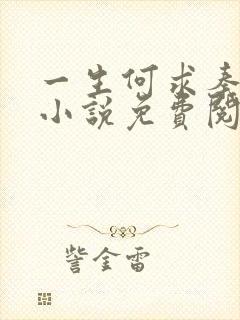 一生何求秦
小說免費閱
訾金雷